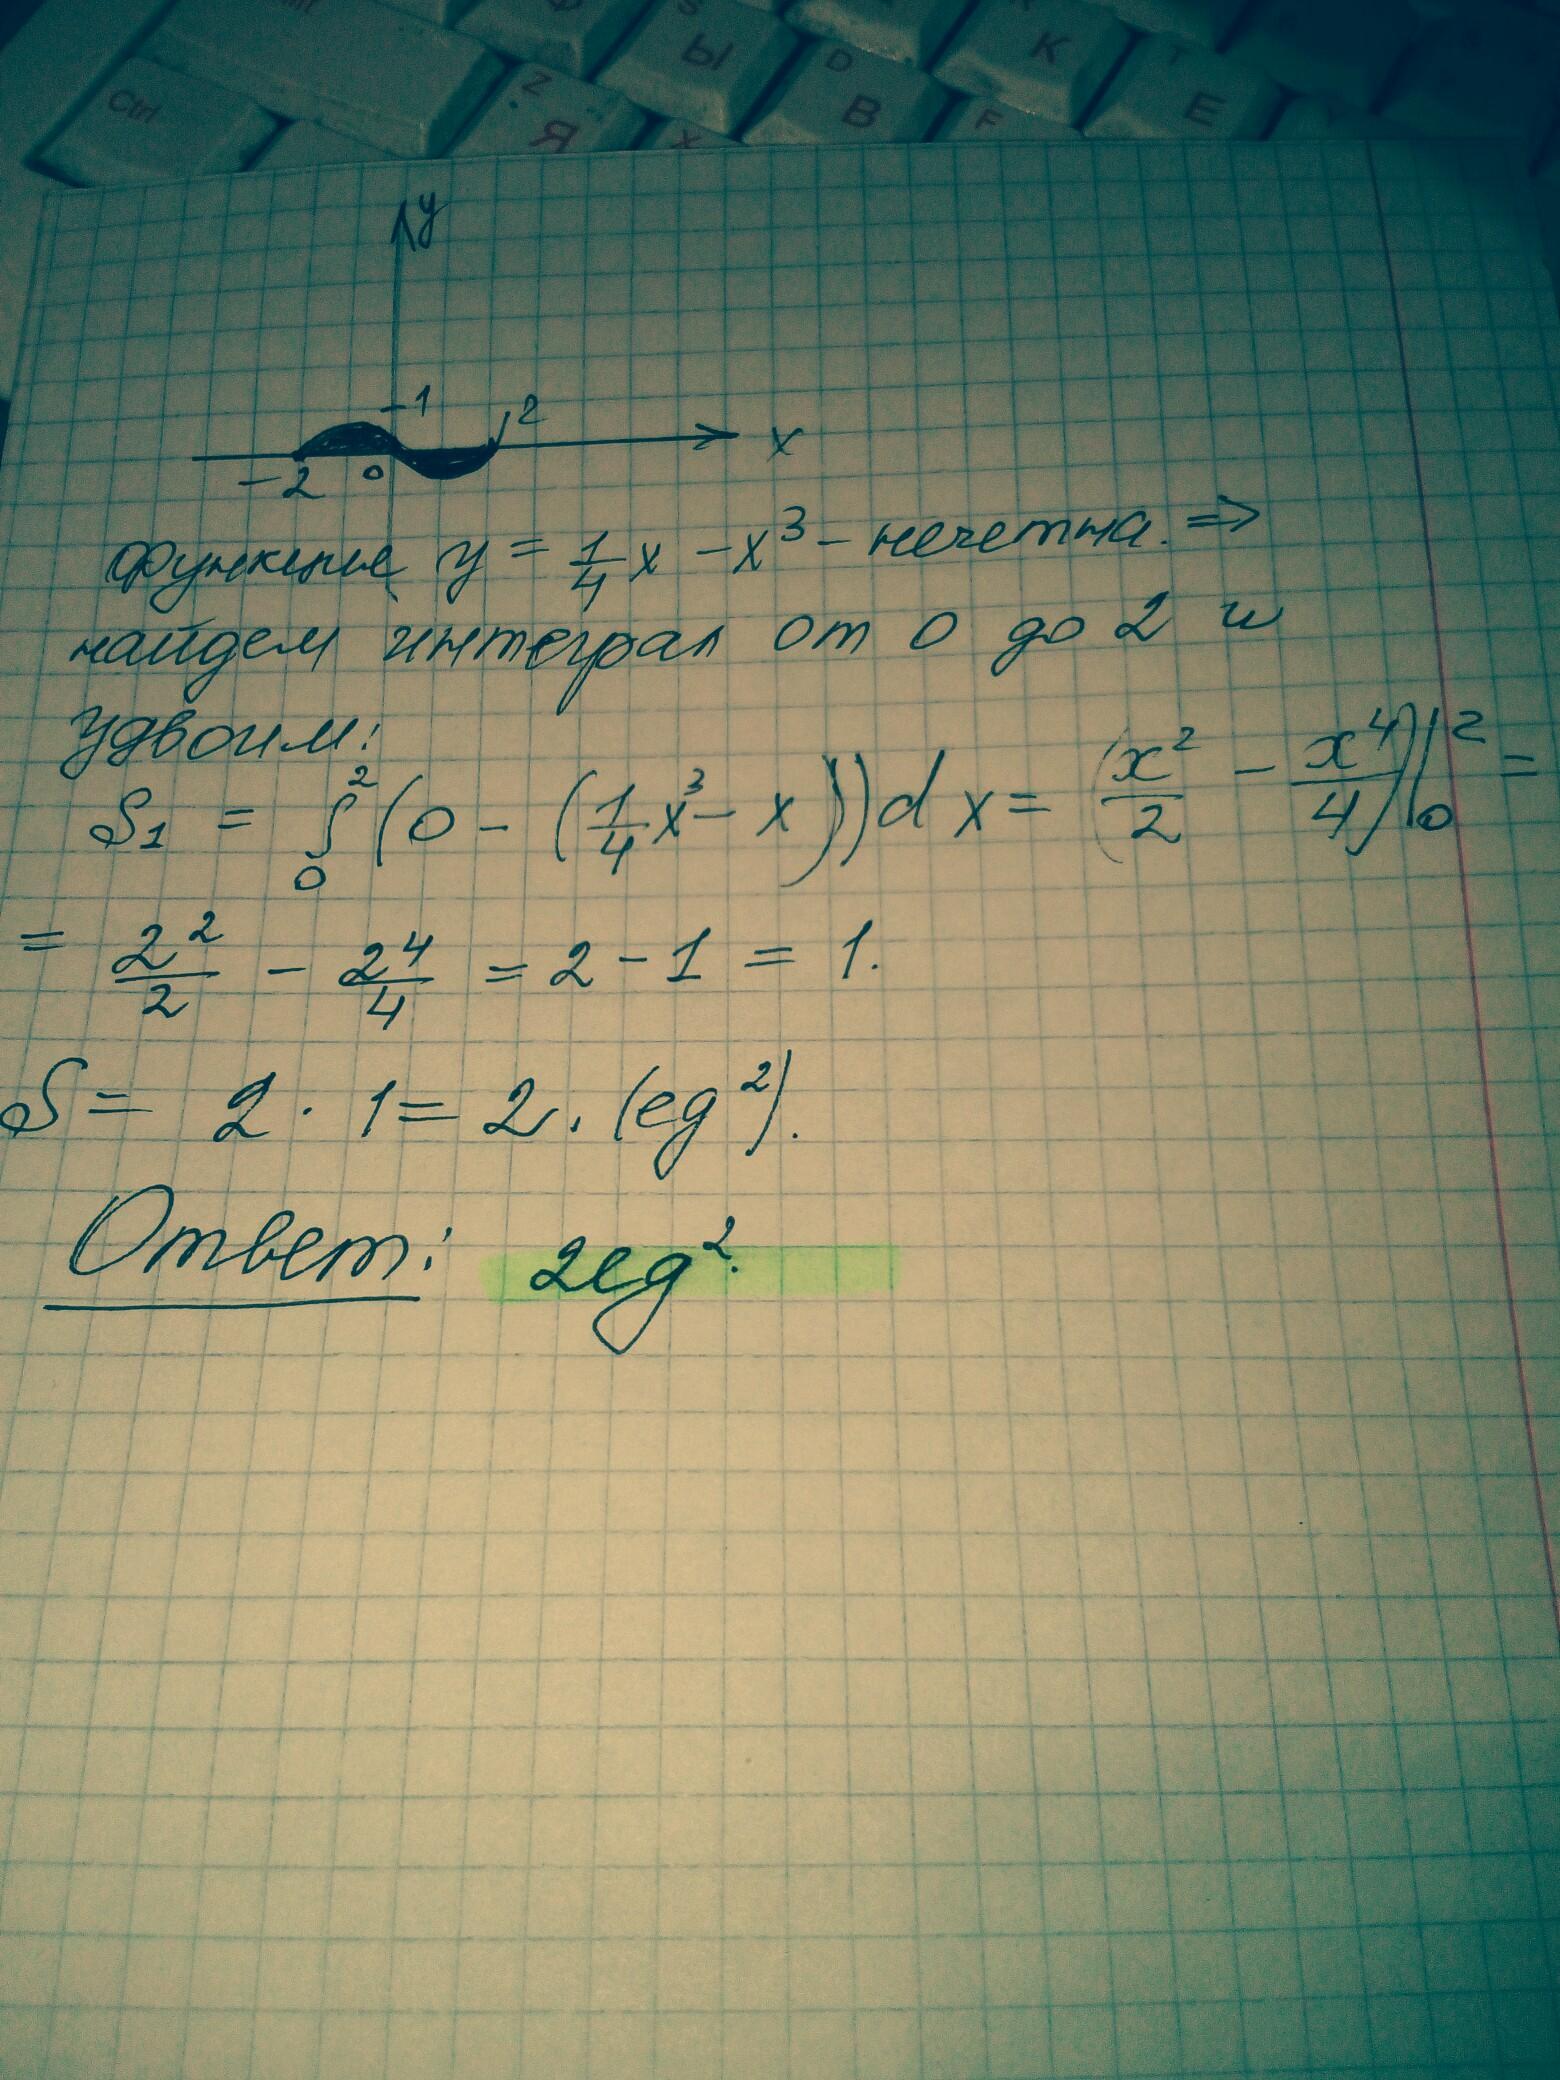 Ctrl Z Я S Ы D В F К Т Е X
y
-1 2
-2 0 x
функция y = 1/4 x - x³ - нечетна. =>
найдем интеграл от 0 до 2 и
удвоим:
S₁ = ∫₀² (0 - (1/4 x³ - x)) dx = (x²/2 - x⁴/4)|₀² =
= 2²/2 - 2⁴/4 = 2 - 1 = 1.
S = 2 · 1 = 2. (ед²).
Ответ: 2ед².